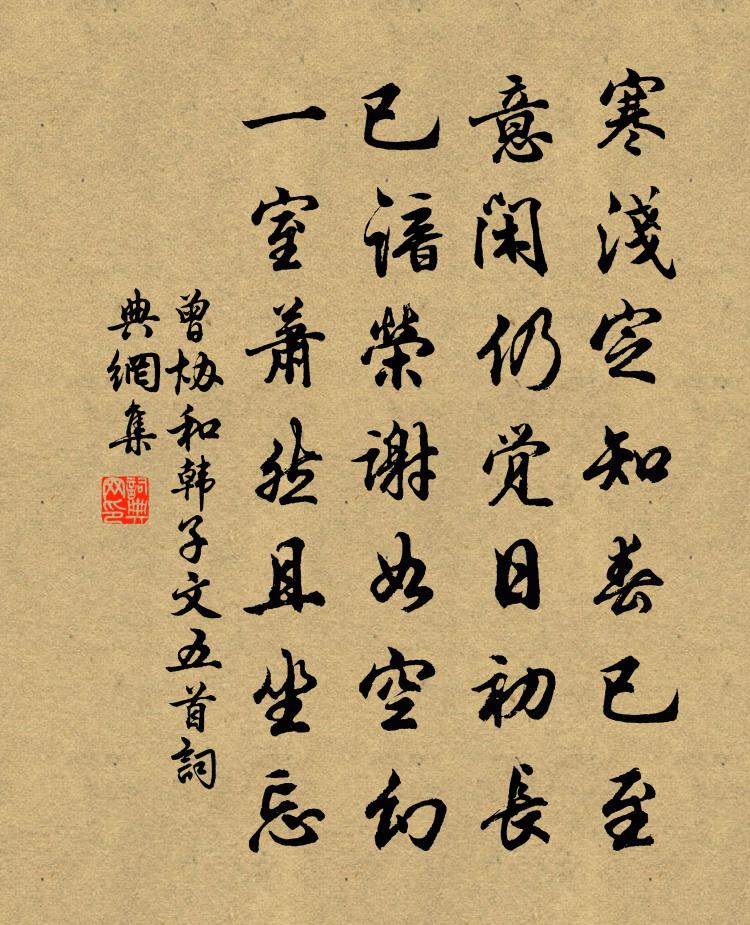 寒淺定知春已至
意閑仍覺日初長
已諳榮謝如空幻
一室蕭然且坐忘
曾協和韩子文五首詞
典網集
詞典网印